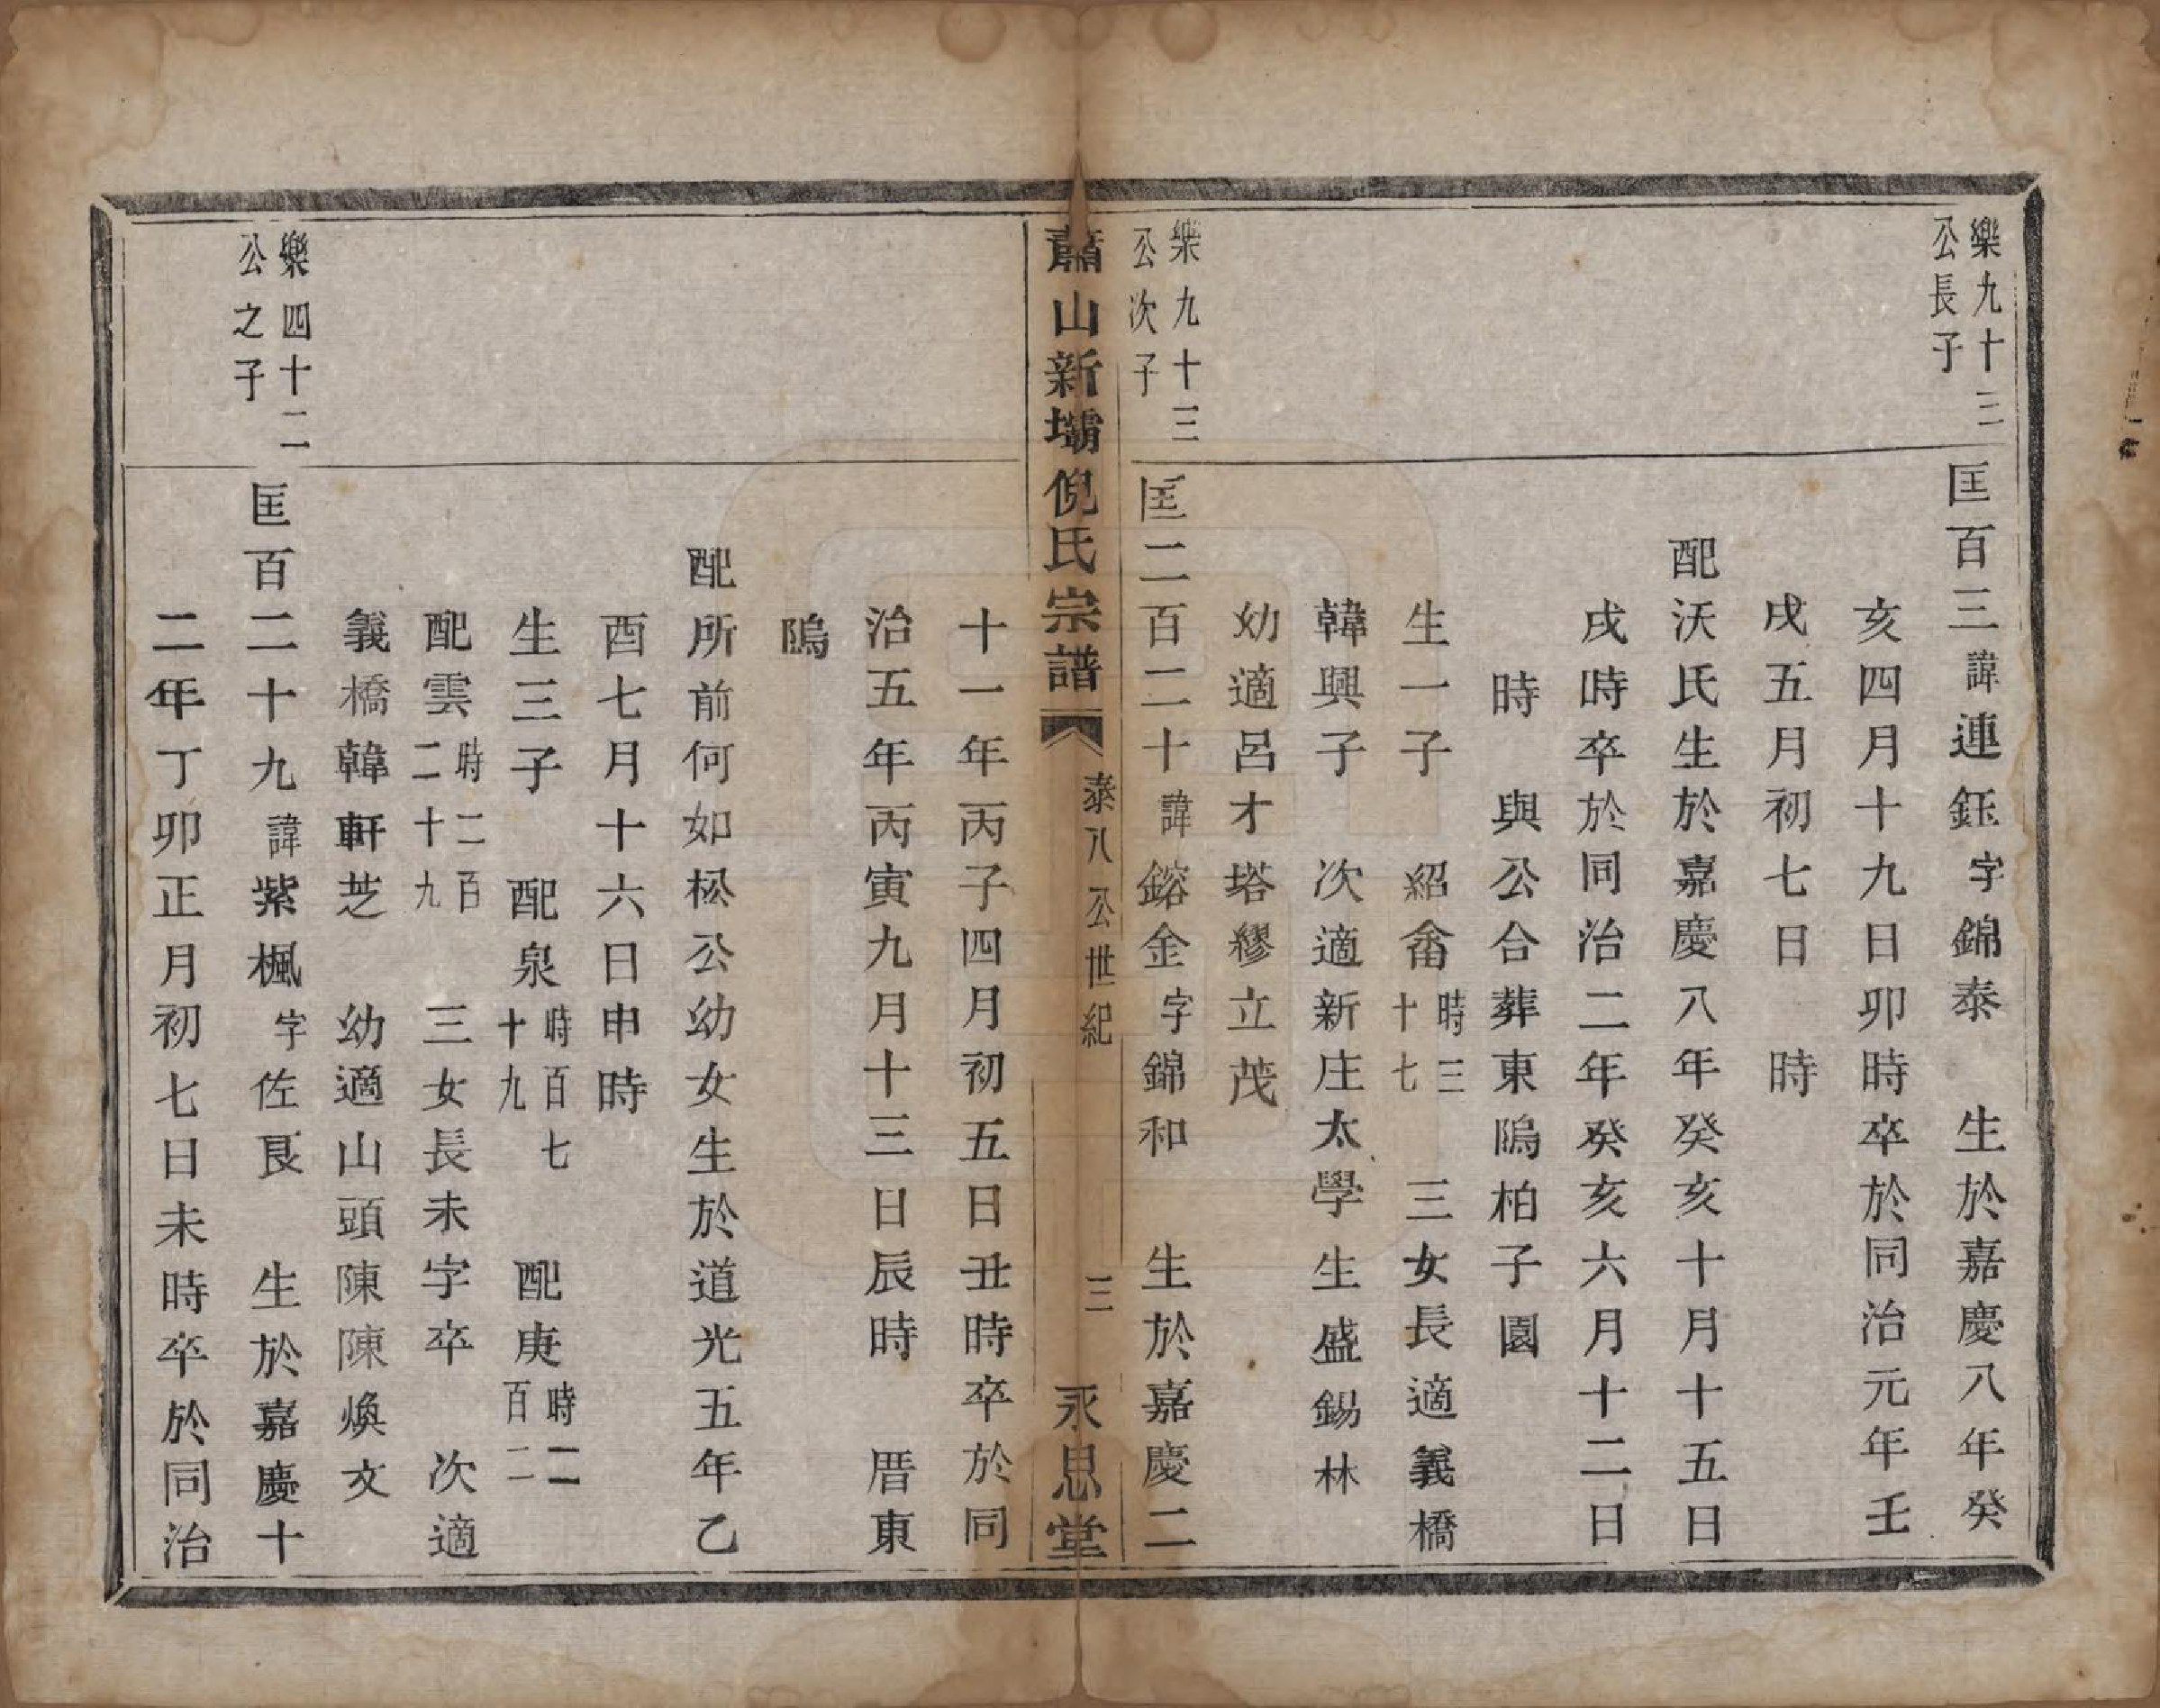 樂九十三
公長子
匡百三諱連鈺字錦泰　生於嘉慶八年癸
亥四月十九日卯時卒於同治元年壬
戌五月初七日　時
配沃氏生於嘉慶八年癸亥十月十五日
戌時卒於同治二年癸亥六月十二日
時　與公合葬東隝柏子園
生一子　紹畬時三十七　三女長適義橋
韓興子　次適新庄太學生盛錫林
幼適呂才塔繆立茂
樂九十三
公次子
匡二百二十諱鎔金字錦和　生於嘉慶二
蕭山新壩倪氏宗譜　泰八公世紀　三　永思堂
十一年丙子四月初五日丑時卒於同
治五年丙寅九月十三日辰時　厝東
隝
配所前何如松公幼女生於道光五年乙
酉七月十六日申時
生三子　配泉時百七十九　配庚時二百二
配雲時二百二十九　三女長未字卒　次適
義橋韓軒芝　幼適山頭陳陳煥文
樂四十二
公之子
匡百二十九諱紫楓字佐良　生於嘉慶十
二年丁卯正月初七日未時卒於同治